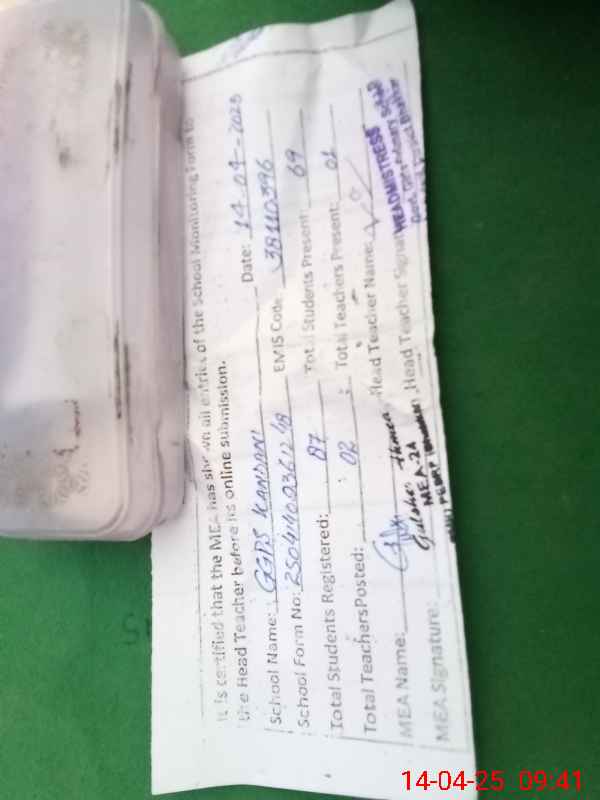 It is certified that the MEA has shown all entries of the School Monitoring Form to
the Head Teacher before its online submission.
School Name: GGPS KANDANI Date: 14-04-2025
School Form No: EMIS Code: 38110396
Total Students Registered: 87 Total Students Present: 69
Total Teachers Posted: 02 Total Teachers Present: 01
MEA Name: Head Teacher Name:
MEA Signature: Head Teacher Signature
MEA 2A
HEADMISTRESS
14-04-25 09:41